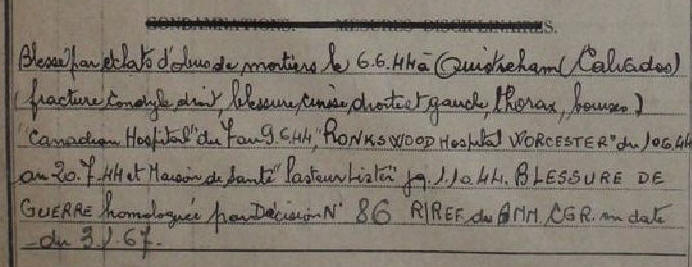 CONDAMNATIONS. MESURES DISCIPLINAIRES.
Blessé par éclats d'obus de mortiers le 6.6.44 à Ouistreham (Calvados)
(fracture condyle droit, blessure cuisse droite et gauche, thorax, bourses)
"Canadian Hospital" du 7 au 9.6.44, "RONKSWOOD Hospital WORCESTER" du 10.6.44
au 20.7.44 et Maison de Santé "Pasteur Lister" jq. 1.10.44. BLESSURE DE
GUERRE homologuée par Décision N° 86 R/REF. du BMM. CGR. en date
du 3.1.67.